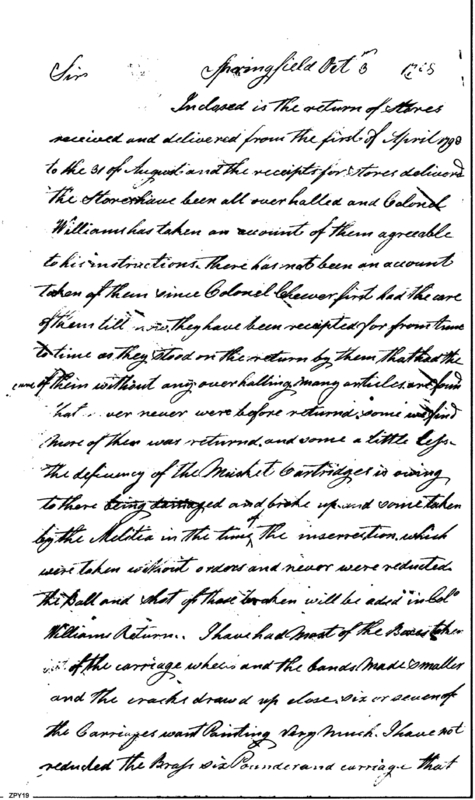 Springfield Oct 3
Sir
Inclosed is the return of Stores
received and delivered from the first of April 1790
to the 31 of August and the receipts for Stores delivered
the Stores have been all over halled and Colonel
Williams has taken an account of them agreable
to his instructions. there has not been an account
taken of them since Colonel Cheever first had the care
of them till now, they have been receipted for from time
to time as they stood on the return by them, that had the
care of them without any over halling, many articles are found
that ver never were before returned, some we find
more of then was returned, and some a little less.
the defiency of the Musket Cartridges is owing
to there being damaged and broke up and some taken
by the Melitia in the time of the inserrection, which
were taken without orders and never were reducted
the Ball and Shot of those broken will be aded in Colo
Williams Return. I have had most of the Boxes taken
out of the carriage wheels and the bands made smaller
and the cracks drawd up close, six or seven of
the Carriages want Painting very much. I have not
reducted the Brass six Pounder and carriage that
ZPY19